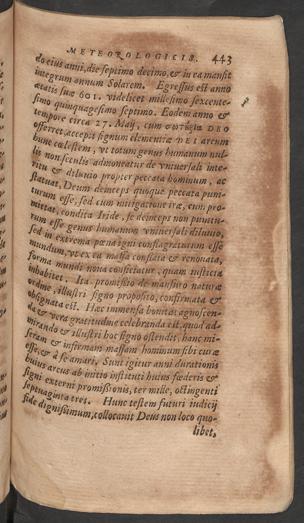 METEOROLOGICIS. 443
do eius anni, die septimo decimo, & in ea mansit
integrum annum Solarem. Egressus est anno
ætatis suæ 601. videlicet millesimo sexcente-
simo quinquagesimo septimo. Eodem anno &
tempore circa 27. Maij, cum DEO
offerret, accepit signum clementiæ DEI arcum
hunc cælestem, vt totum genus humanum nul-
lis non seculis admoneatur de vniuersali inte-
ritu & diluuio propter peccata hominum, ac
statuat, Deum deinceps quoque peccata puni-
turum esse, sed cum mitigatione iræ, cum pro-
mittat, condita Iride, se deinceps non punitu-
rum esse genus humanum vniuersali diluuio,
sed in extrema pœna igni conflagraturum esse
mundum, vt ex ea massa conflata & renouata,
forma mundi noua conficiatur, quam iustitia
inhabitet. Ita promissio de mansuro naturæ
ordine, illustri signo proposito, confirmata &
obsignata est. Hæc immensa bonitas agnoscen-
da & vera gratitudine celebranda est, quod ad-
mirando & illustri hoc signo ostendit, hanc mi-
seram & infirmam massam hominum sibi curæ
esse, & à se amari. Sunt igitur anni durationis
huius arcus ab initio instituti huius fœderis &
signi externi promissionis, ter mille, octingenti
septuaginta tres. Hunc testem futuri iudicij
fide dignissimum, collocauit Deus non loco quo-
libet,